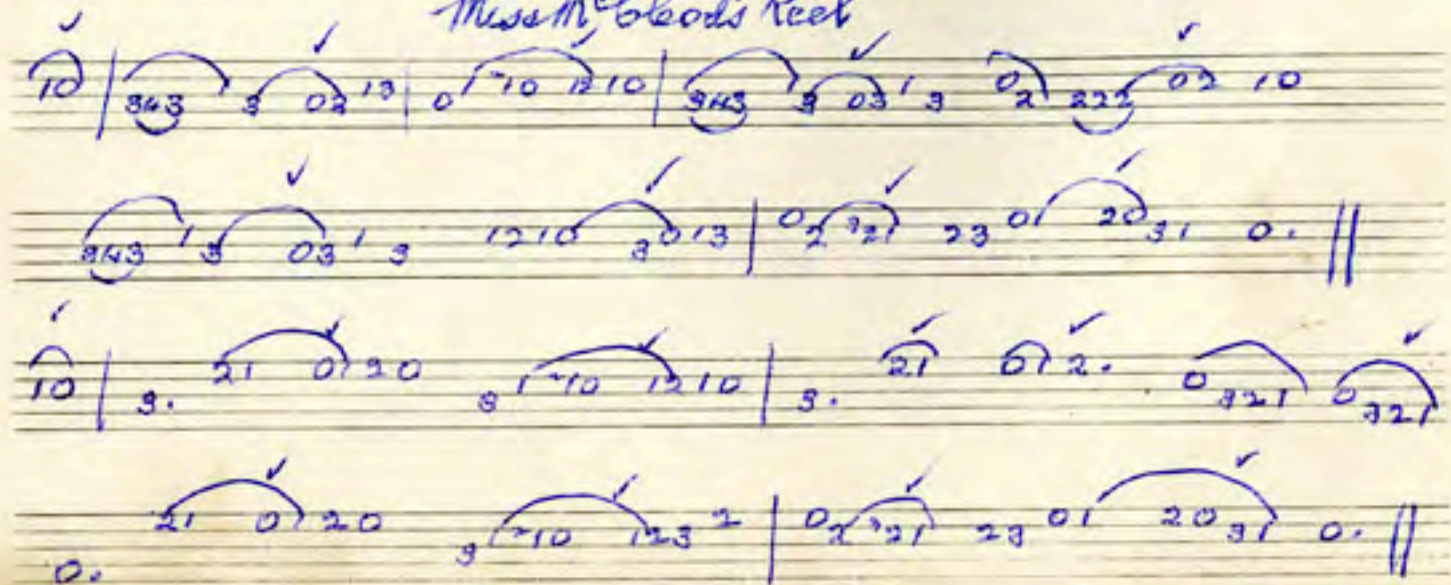 Miss McCleod's Reel
10 | 343 3 03 13 | 0 1 ~10 1210 | 343 3 03 1 3 0 2 222 02 10
343 1 3 03 1 3 1210 3 013 | 0 2 321 23 01 20 31 0. ||
10 | 3. 21 01 20 3 1 ~10 1210 | 3. 21 01 2. 0 321 0 321
0. 21 01 20 3 1 ~10 123 2 | 0 2 321 23 01 20 31 0. ||